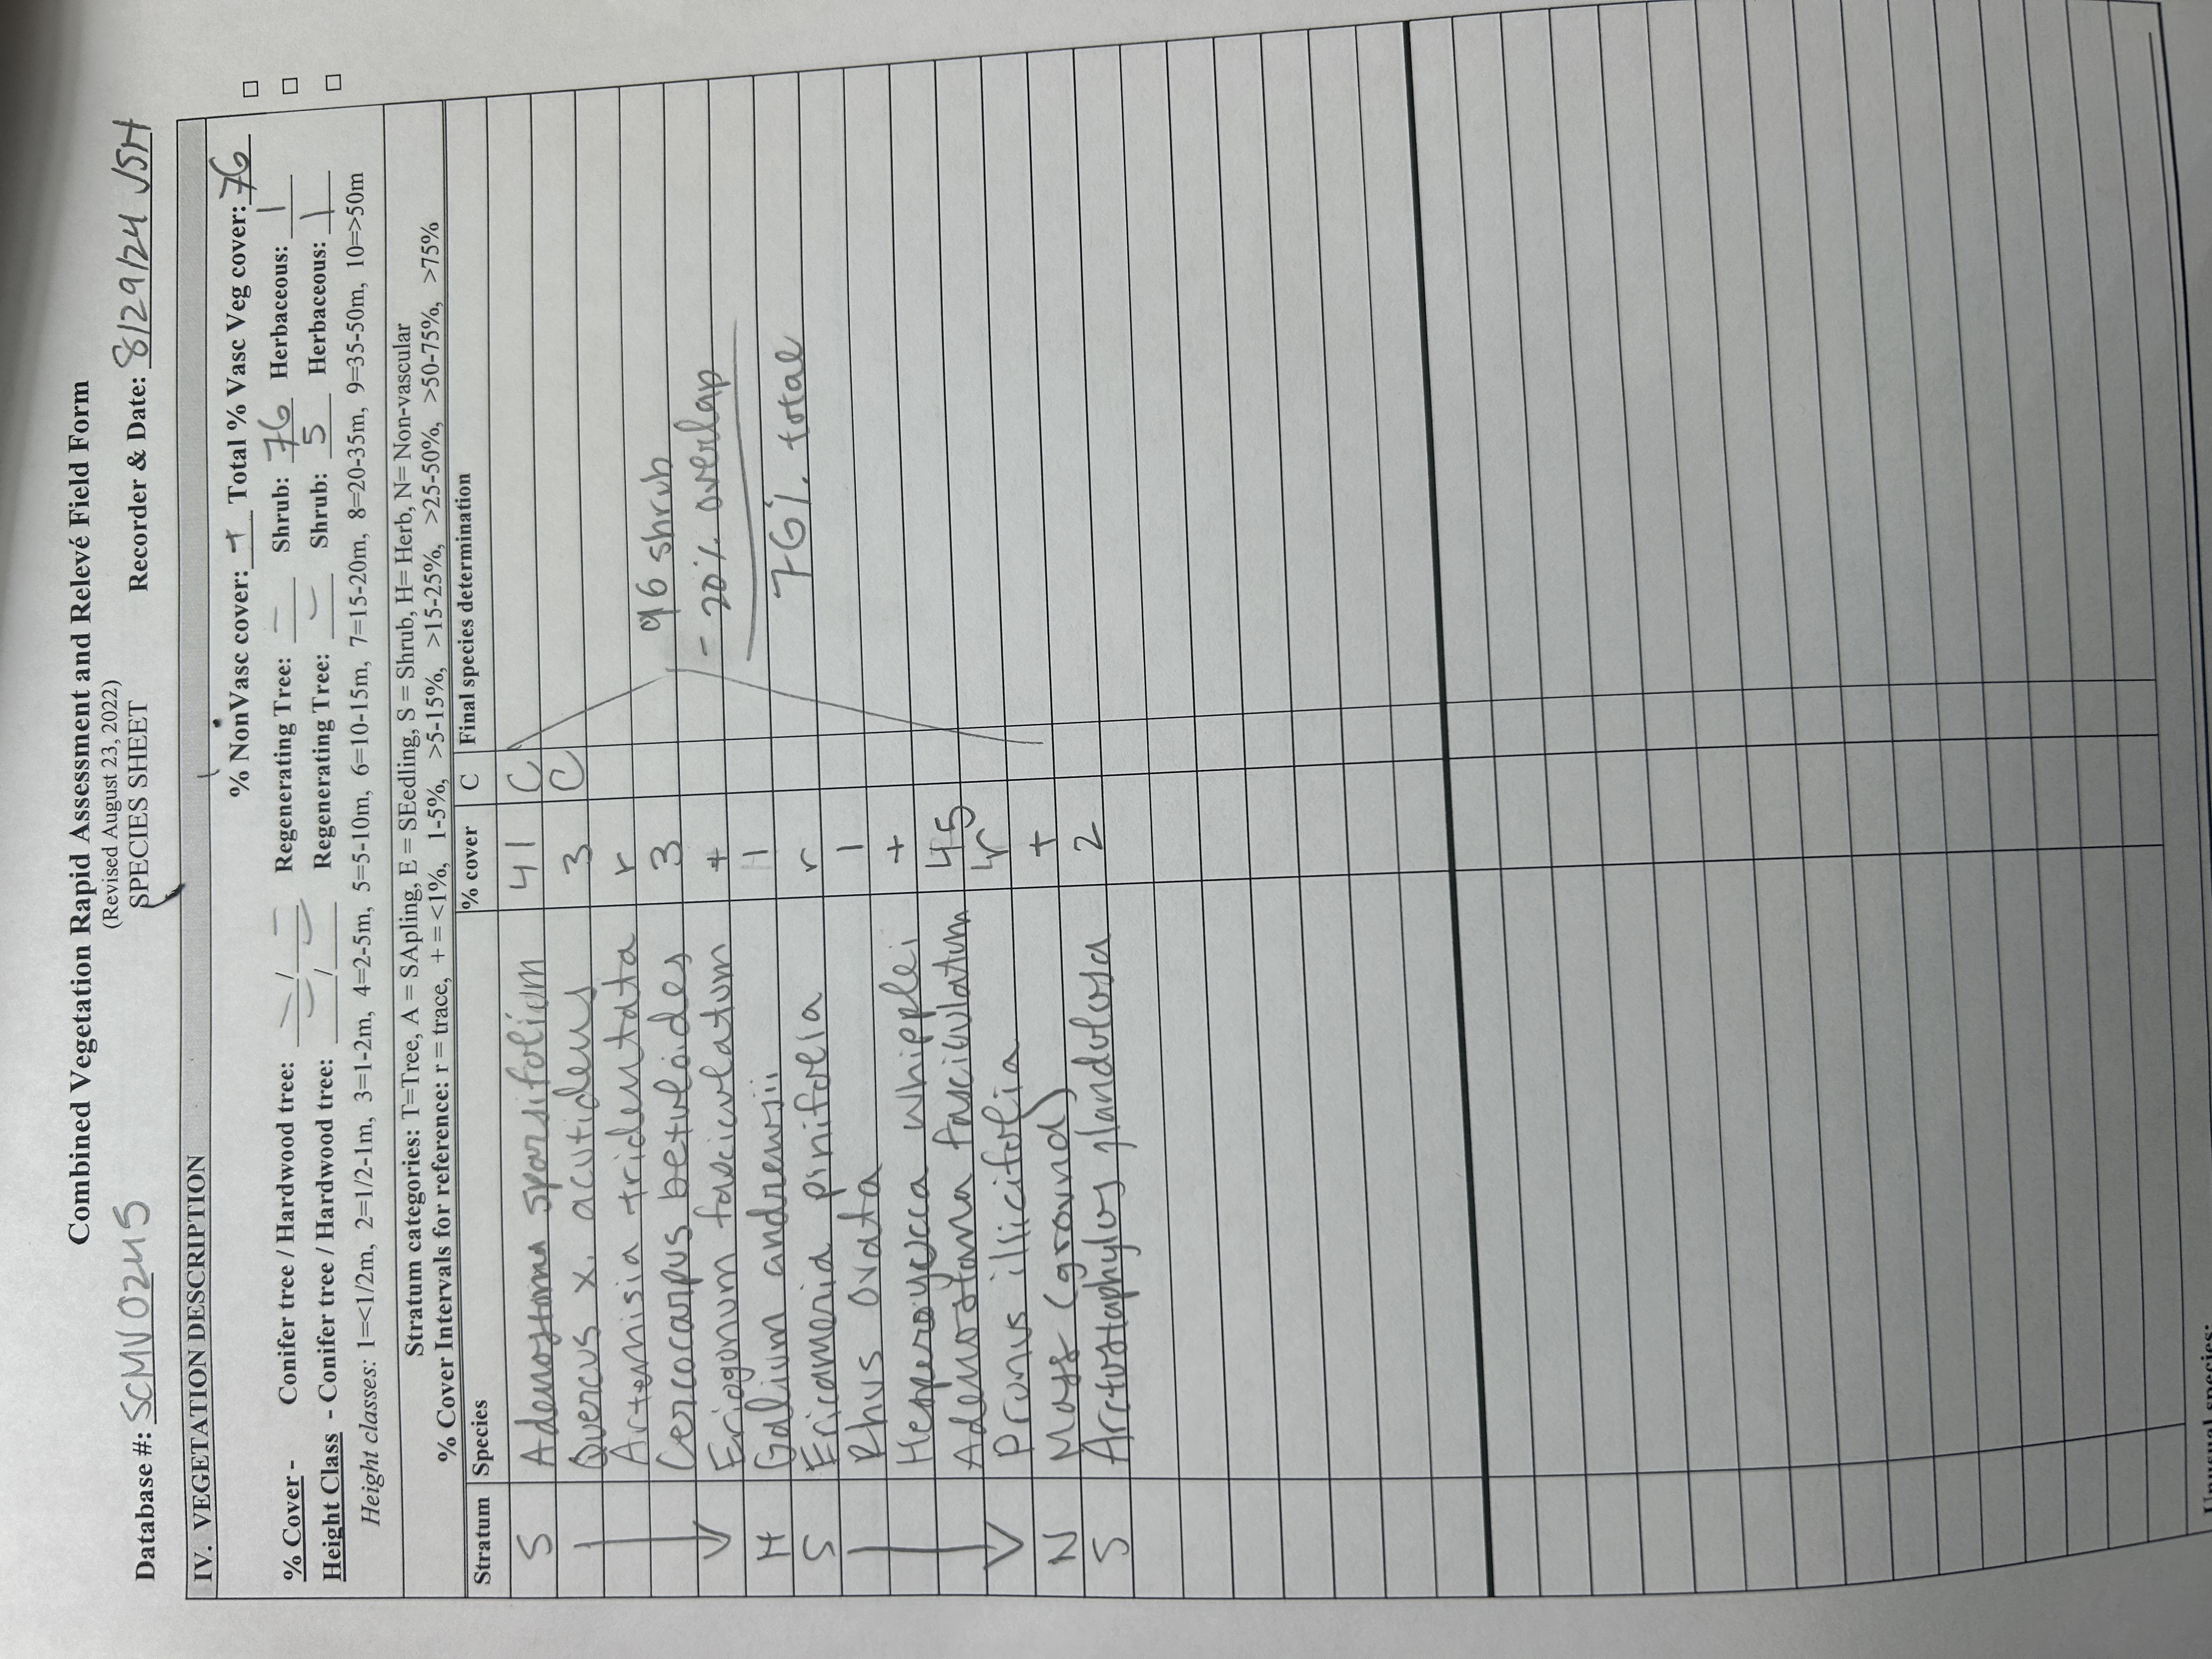 Combined Vegetation Rapid Assessment and Relevé Field Form
(Revised August 23, 2022)
SPECIES SHEET
Database #: SCMV0245 Recorder & Date: 8/29/24 JSH
IV. VEGETATION DESCRIPTION
% NonVasc cover: + Total % Vasc Veg cover: 76
% Cover - Conifer tree / Hardwood tree: — / — Regenerating Tree: — Shrub: 76 Herbaceous: 1
Height Class - Conifer tree / Hardwood tree: — / — Regenerating Tree: — Shrub: 5 Herbaceous: 1
Height classes: 1=<1/2m, 2=1/2-1m, 3=1-2m, 4=2-5m, 5=5-10m, 6=10-15m, 7=15-20m, 8=20-35m, 9=35-50m, 10=>50m
Stratum categories: T=Tree, A = SApling, E = SEedling, S = Shrub, H= Herb, N= Non-vascular
% Cover Intervals for reference: r = trace, + = <1%, 1-5%, >5-15%, >15-25%, >25-50%, >50-75%, >75%
Stratum Species % cover C Final species determination
S Adenostoma sparsifolium 41 C
Quercus x. acutidens 3 C
Artemisia tridentata r
Cercocarpus betuloides 3 96 shrub
Eriogonum fasciculatum + - 20% overlap
H Galium andrewsii 1
S Ericameria pinifolia r 76% total
Rhus ovata 1
Hesperoyucca whipplei +
Adenostoma fasciculatum 45
Prunus illicifolia r
N Moss (ground) +
S Arctostaphylos glandulosa 2
Unusual species: